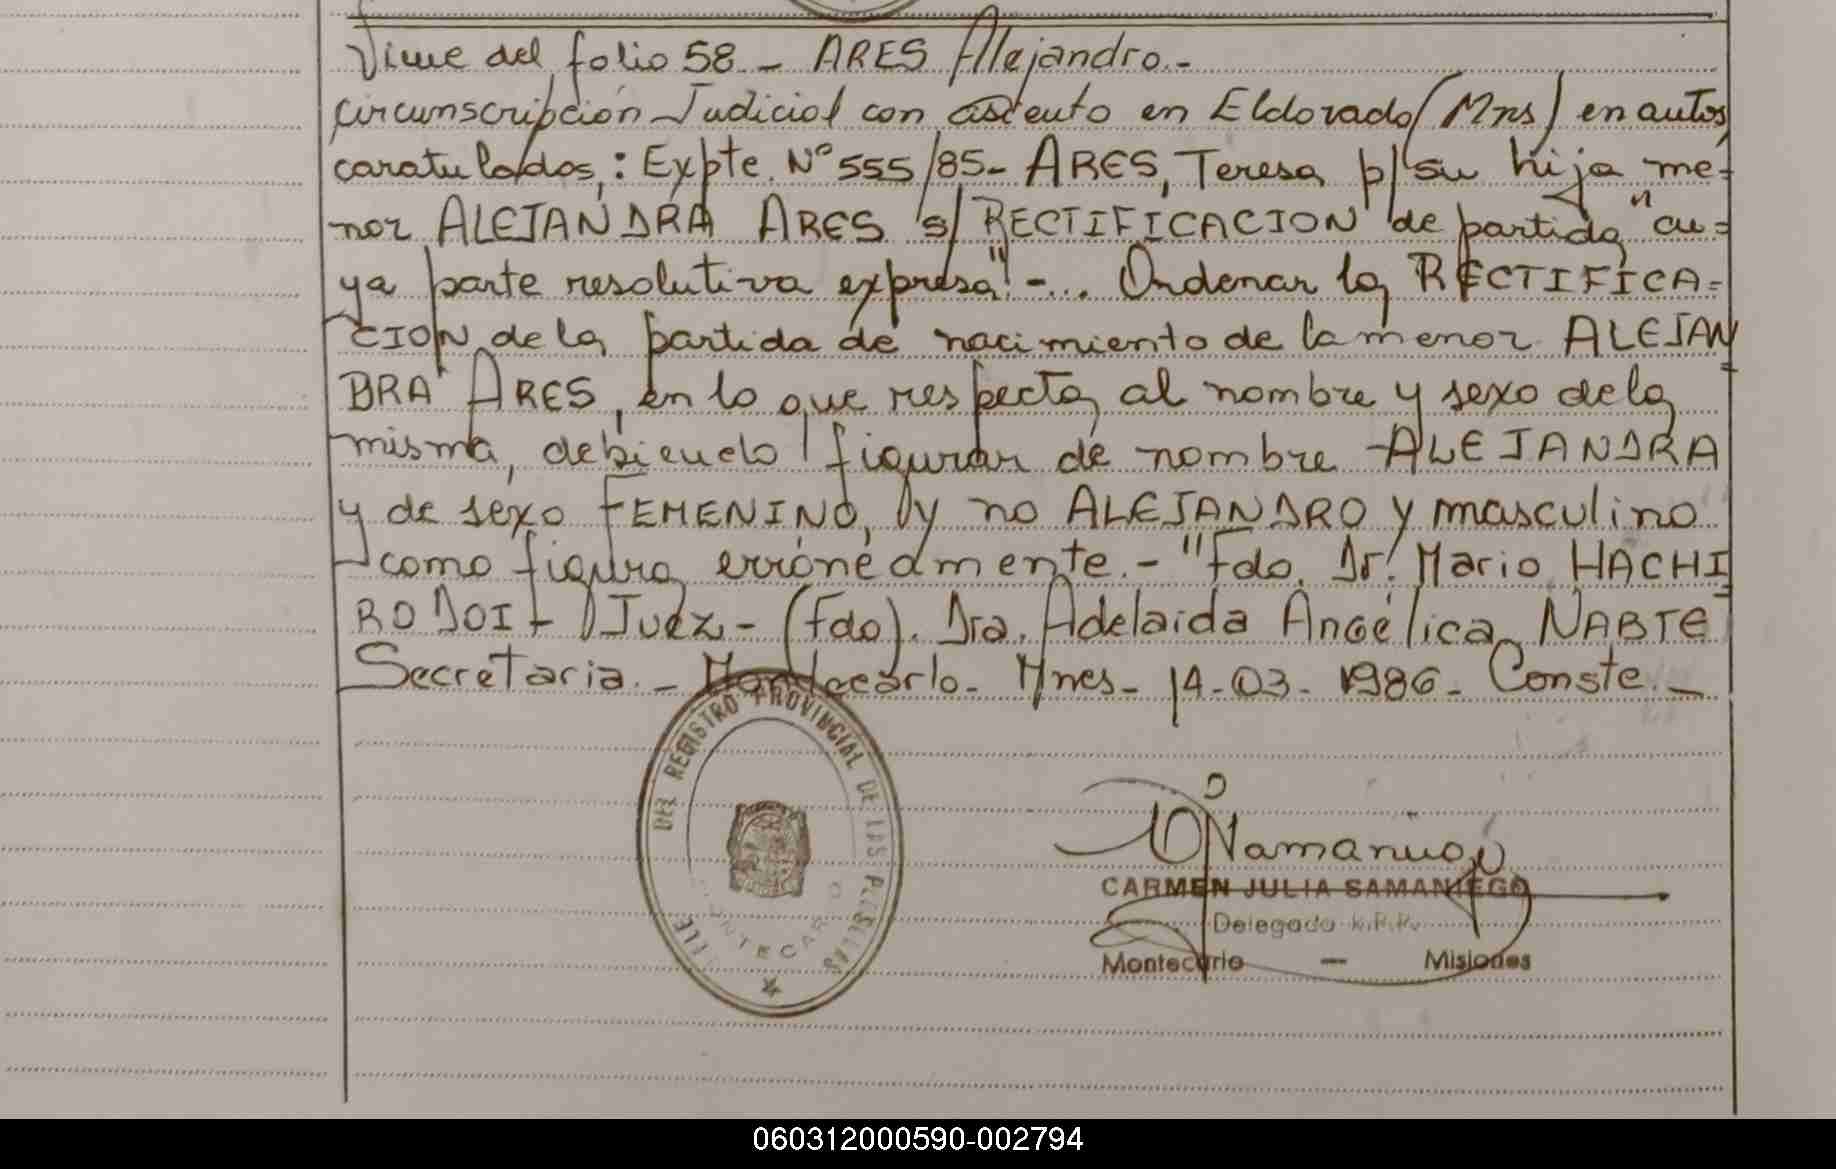 Viene del folio 58.- ARES Alejandro.-
circunscripción Judicial con asiento en Eldorado (Mns) en autos
caratulados: Expte. Nº 555/85- ARES, Teresa p/su hija me-
nor ALEJANDRA ARES s/RECTIFICACION de partida" cu=
ya parte resolutiva expresa"-... Ordenar la RECTIFICA=
CION de la partida de nacimiento de la menor ALEJAN=
DRA ARES, en lo que respecta al nombre y sexo de la
misma, debiendo figurar de nombre ALEJANDRA
y de sexo FEMENINO, y no ALEJANDRO y masculino
como figura erróneamente.-"Fdo. Dr. Mario HACHI=
RO DOI- Juez- (Fdo). Dra. Adelaida Angélica NABTE
Secretaria.- Montecarlo- Mnes- 14-03-1986- Conste.-
DEL REGISTRO PROVINCIAL DE LAS PERSONAS
CARMEN JULIA SAMANIEGO
Delegado R.P.P.
Montecarlo — Misiones
060312000590-002794